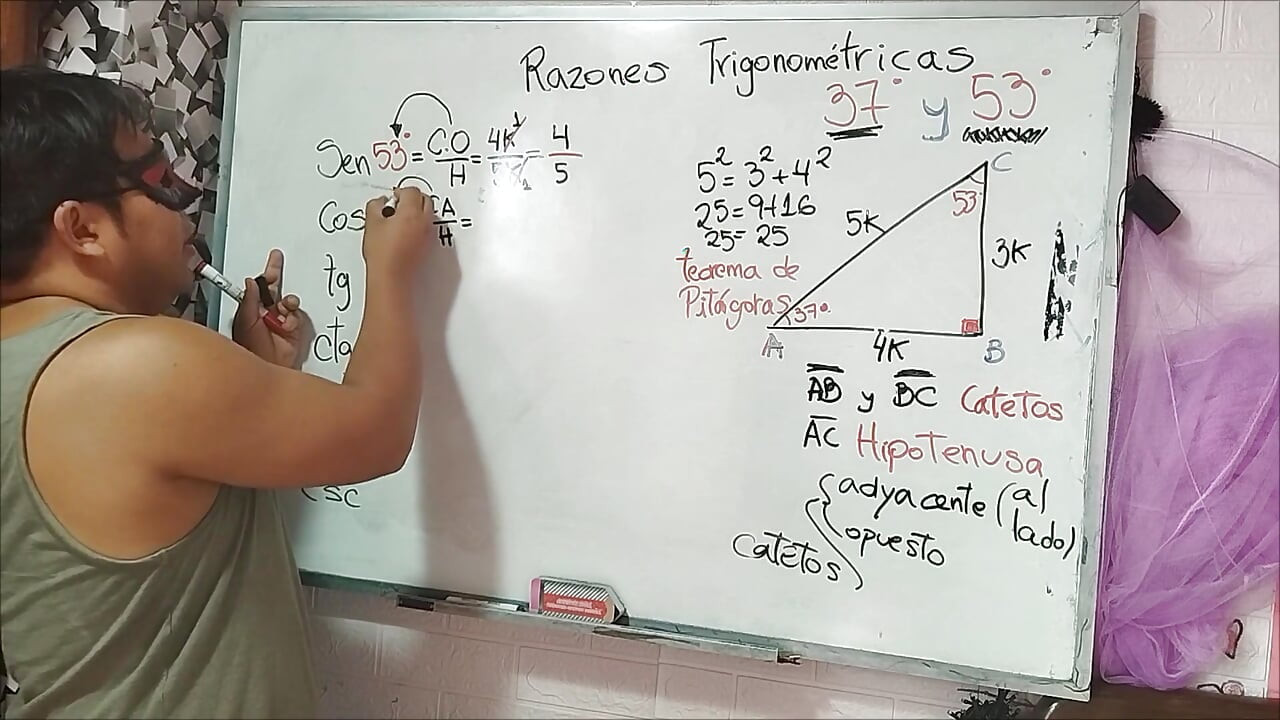 Razones Trigonométricas
37° y 53°
Sen 53° = C.O/H = 4K/5K = 4/5
Cos CA/H =
tg
cta
Csc
5² = 3² + 4²
25 = 9+16
25 = 25
teorema de
Pitágoras
C
53°
5K
3K
37°
A
4K
B
AB y BC Catetos
AC Hipotenusa
Catetos { adyacente (al lado)
opuesto